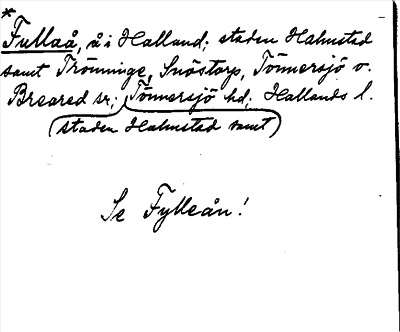 *
Fullaå, å i Halland; staden Halmstad
samt Trönninge, Snöstorp, Tönnersjö o.
Breared sr; Tönnersjö hd; Hallands l.
(staden Halmstad samt)
Se Fylleån!